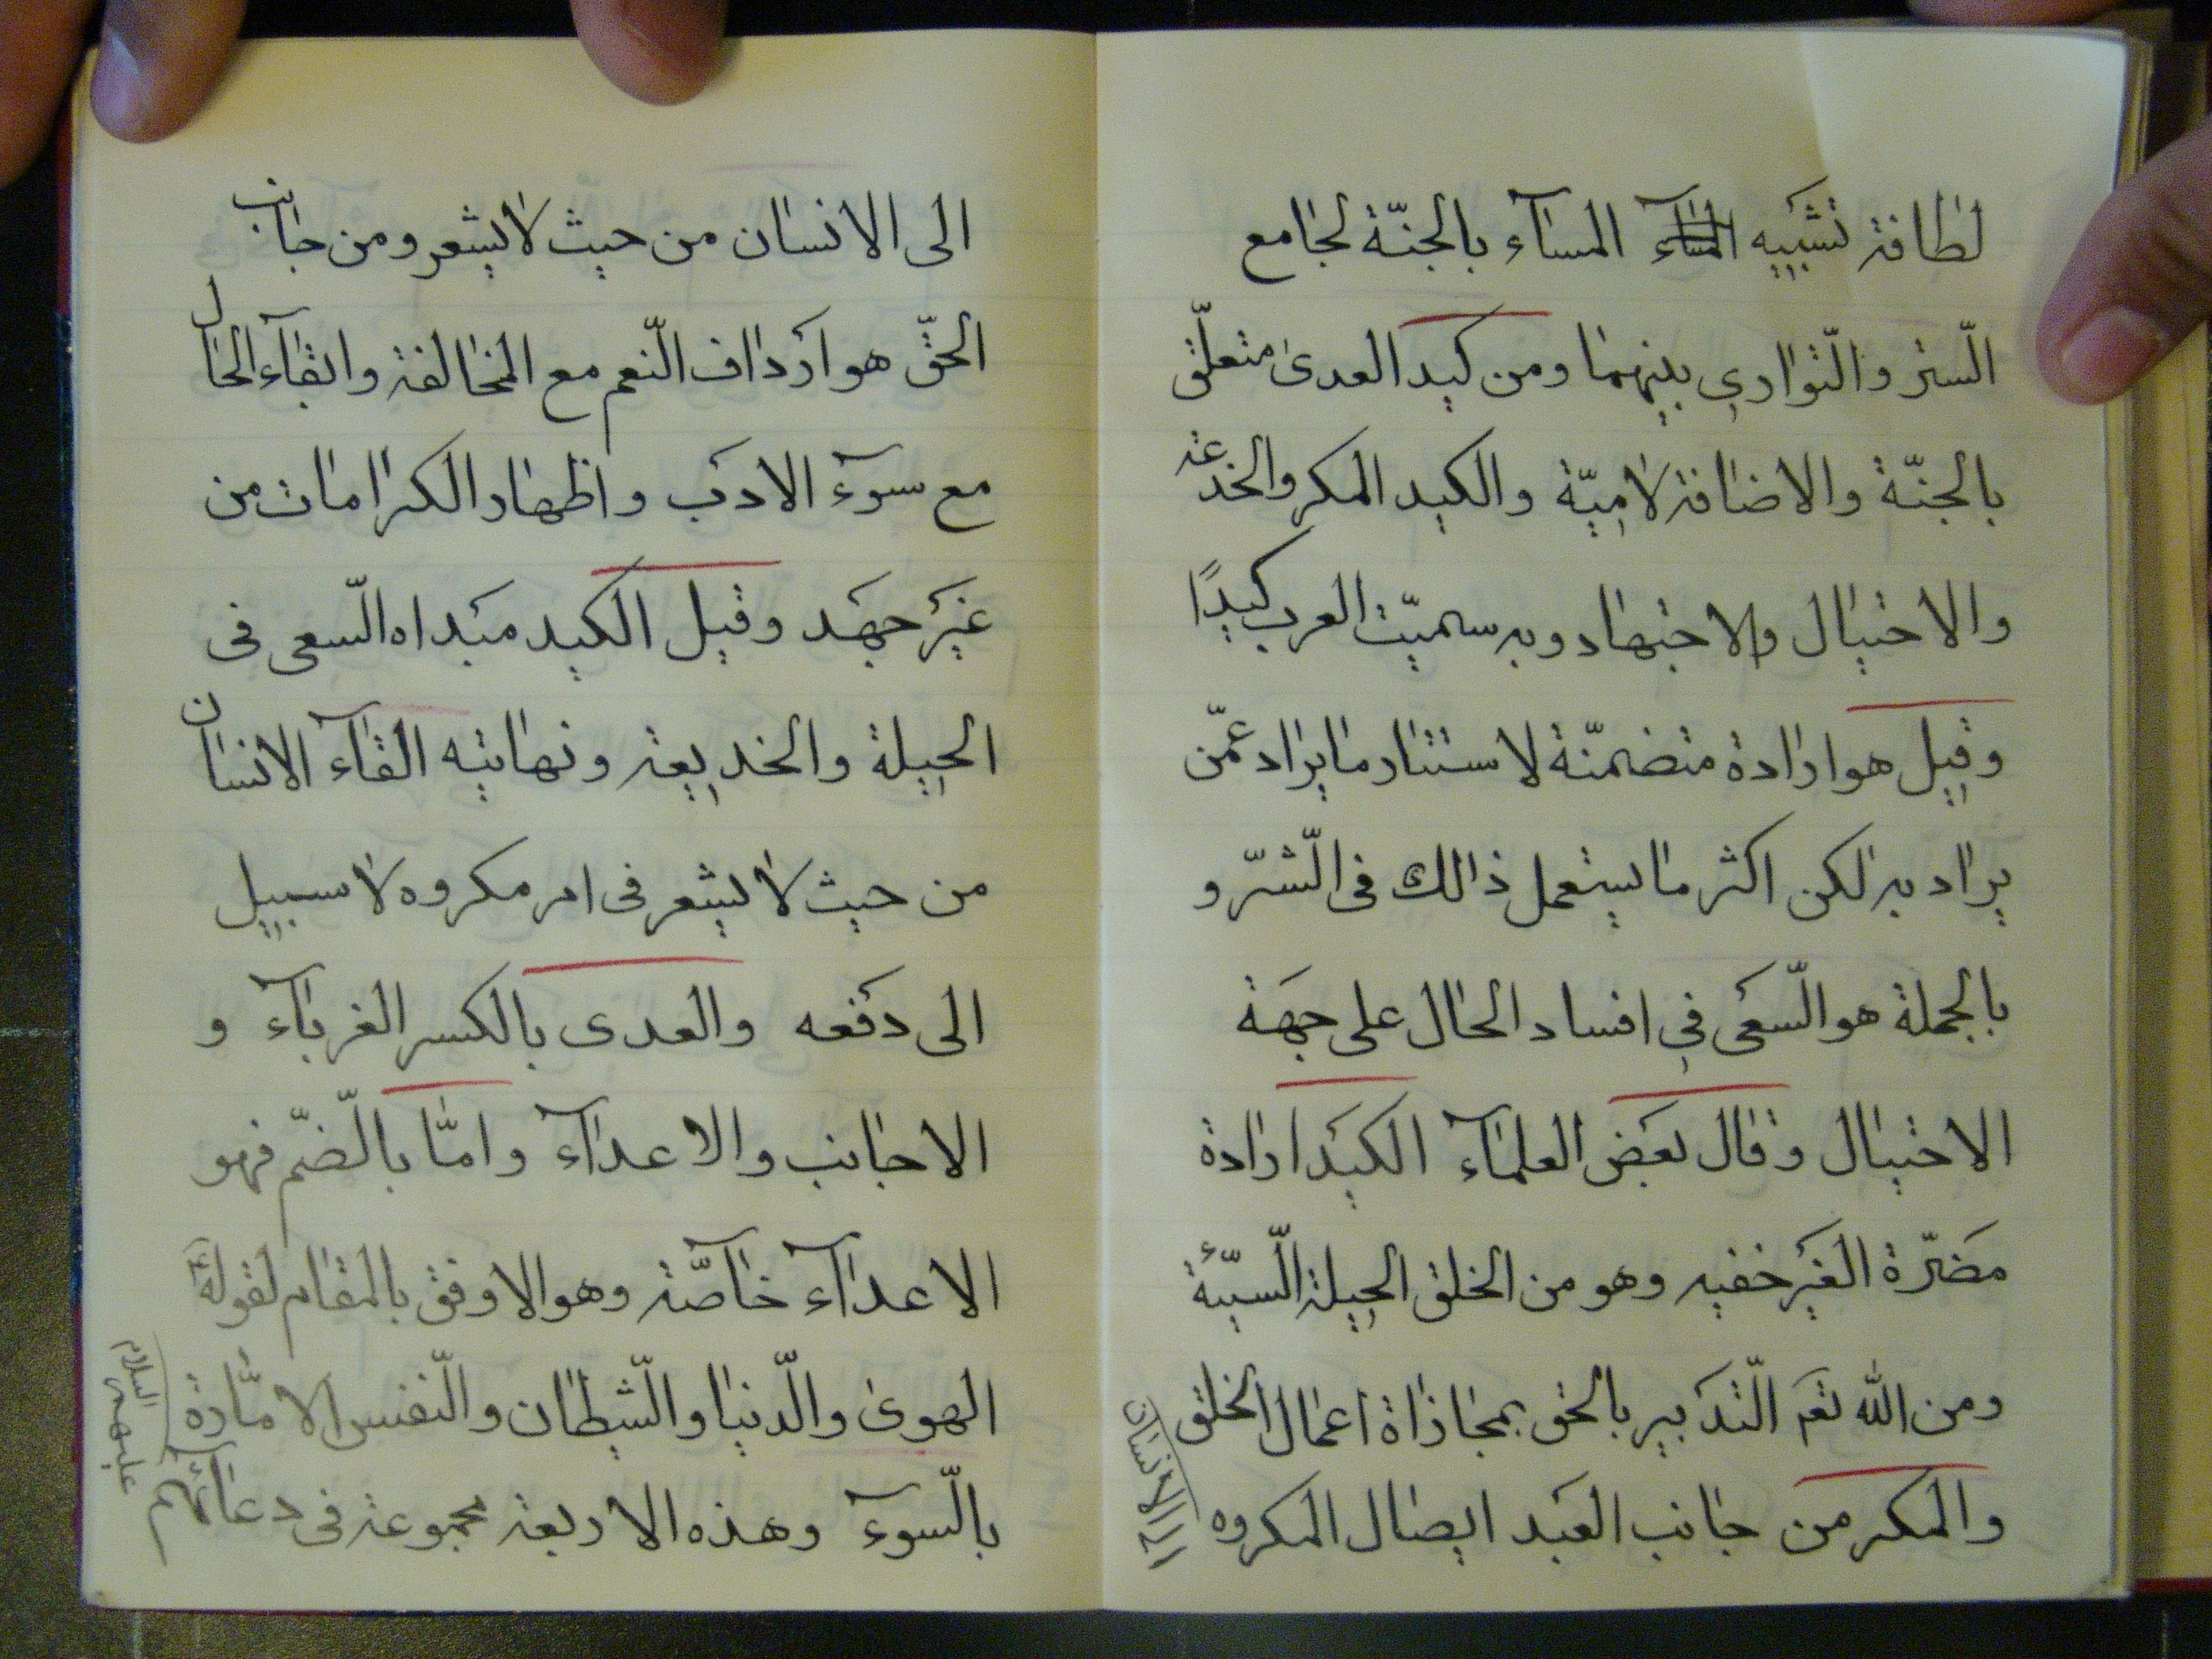 لطافة تشبيه المسآء المسآء بالجنّة لجامع
السّتر والتّواري بينهما ومن كيد العدى متعلّق
بالجنّة والاضافة لاميّة والكيد المكر والخدعة
والاحتيال والاجتهاد وبه سميّت العرب كيدًا
وقيل هو ارادة متضمنّة لاستتار ما يراد عمّن
يراد به لكن اكثر ما يستعمل ذالك فى الشّرّ و
بالجملة هو السّعى في افساد الحال على جهة
الاحتيال وقال بعض العلمآء الكيد ارادة
مضرّة الغير خفيه وهو من الخلق الحيلة السّيّئة
ومن الله تعم التّدبير بالحق بمجازاة اعمال الخلق
والمكر من جانب العبد ايصال المكروه
الى الانسان
الى الانسان من حيث لا يشعر ومن جانب
الحقّ هو ارداف النّعم مع المخالفة وابقآء الحال
مع سوء الادب واظهار الكرامات من
غير جهد وقيل الكيد مبداه السّعى فى
الحيلة والخديعة ونهايته القآء الانسان
من حيث لا يشعر فى امر مكروه لا سبيل
الى دفعه والعدى بالكسر الغربآء و
الاجانب والاعدآء وامّا بالضّمّ فهو
الاعدآء خآصّة وهو الاوفق بالمقام لقوله
الهوى والدّنيا والشّيطان والنّفس الامّارة
بالسّوء وهذه الاربعة مجموعة فى دعائهم
عليهم السلام